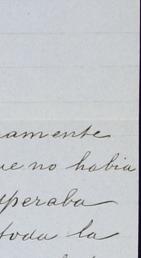 amente
ue no habia
speraba
toda la